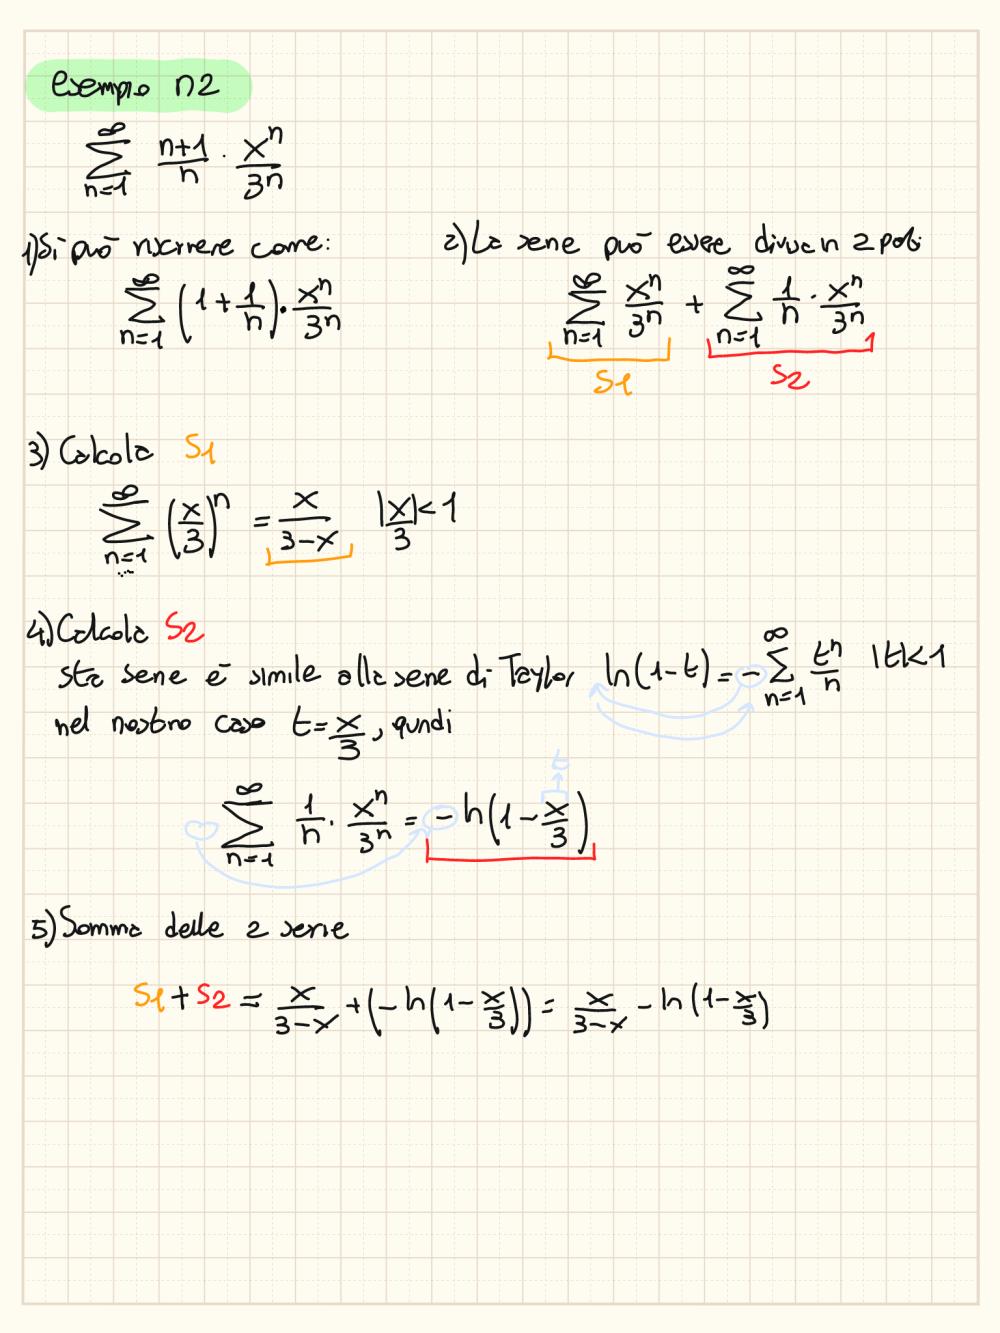 Esempio n2
∑_{n=1}^{∞} (n+1)/n · x^n/3^n
1) Si può riscrivere come:
∑_{n=1}^{∞} (1 + 1/n) · x^n/3^n
2) La serie può essere divisa in 2 parti
∑_{n=1}^{∞} x^n/3^n + ∑_{n=1}^{∞} 1/n · x^n/3^n
S1 S2
3) Calcola S1
∑_{n=1}^{∞} (x/3)^n = x/(3-x) |x/3| < 1
4) Calcola S2
sta serie è simile alla serie di Taylor ln(1-t) = -∑_{n=1}^{∞} t^n/n |t|<1
nel nostro caso t = x/3, quindi
t
∑_{n=1}^{∞} 1/n · x^n/3^n = - ln(1 - x/3)
5) Somma delle 2 serie
S1 + S2 = x/(3-x) + (- ln(1 - x/3)) = x/(3-x) - ln(1 - x/3)